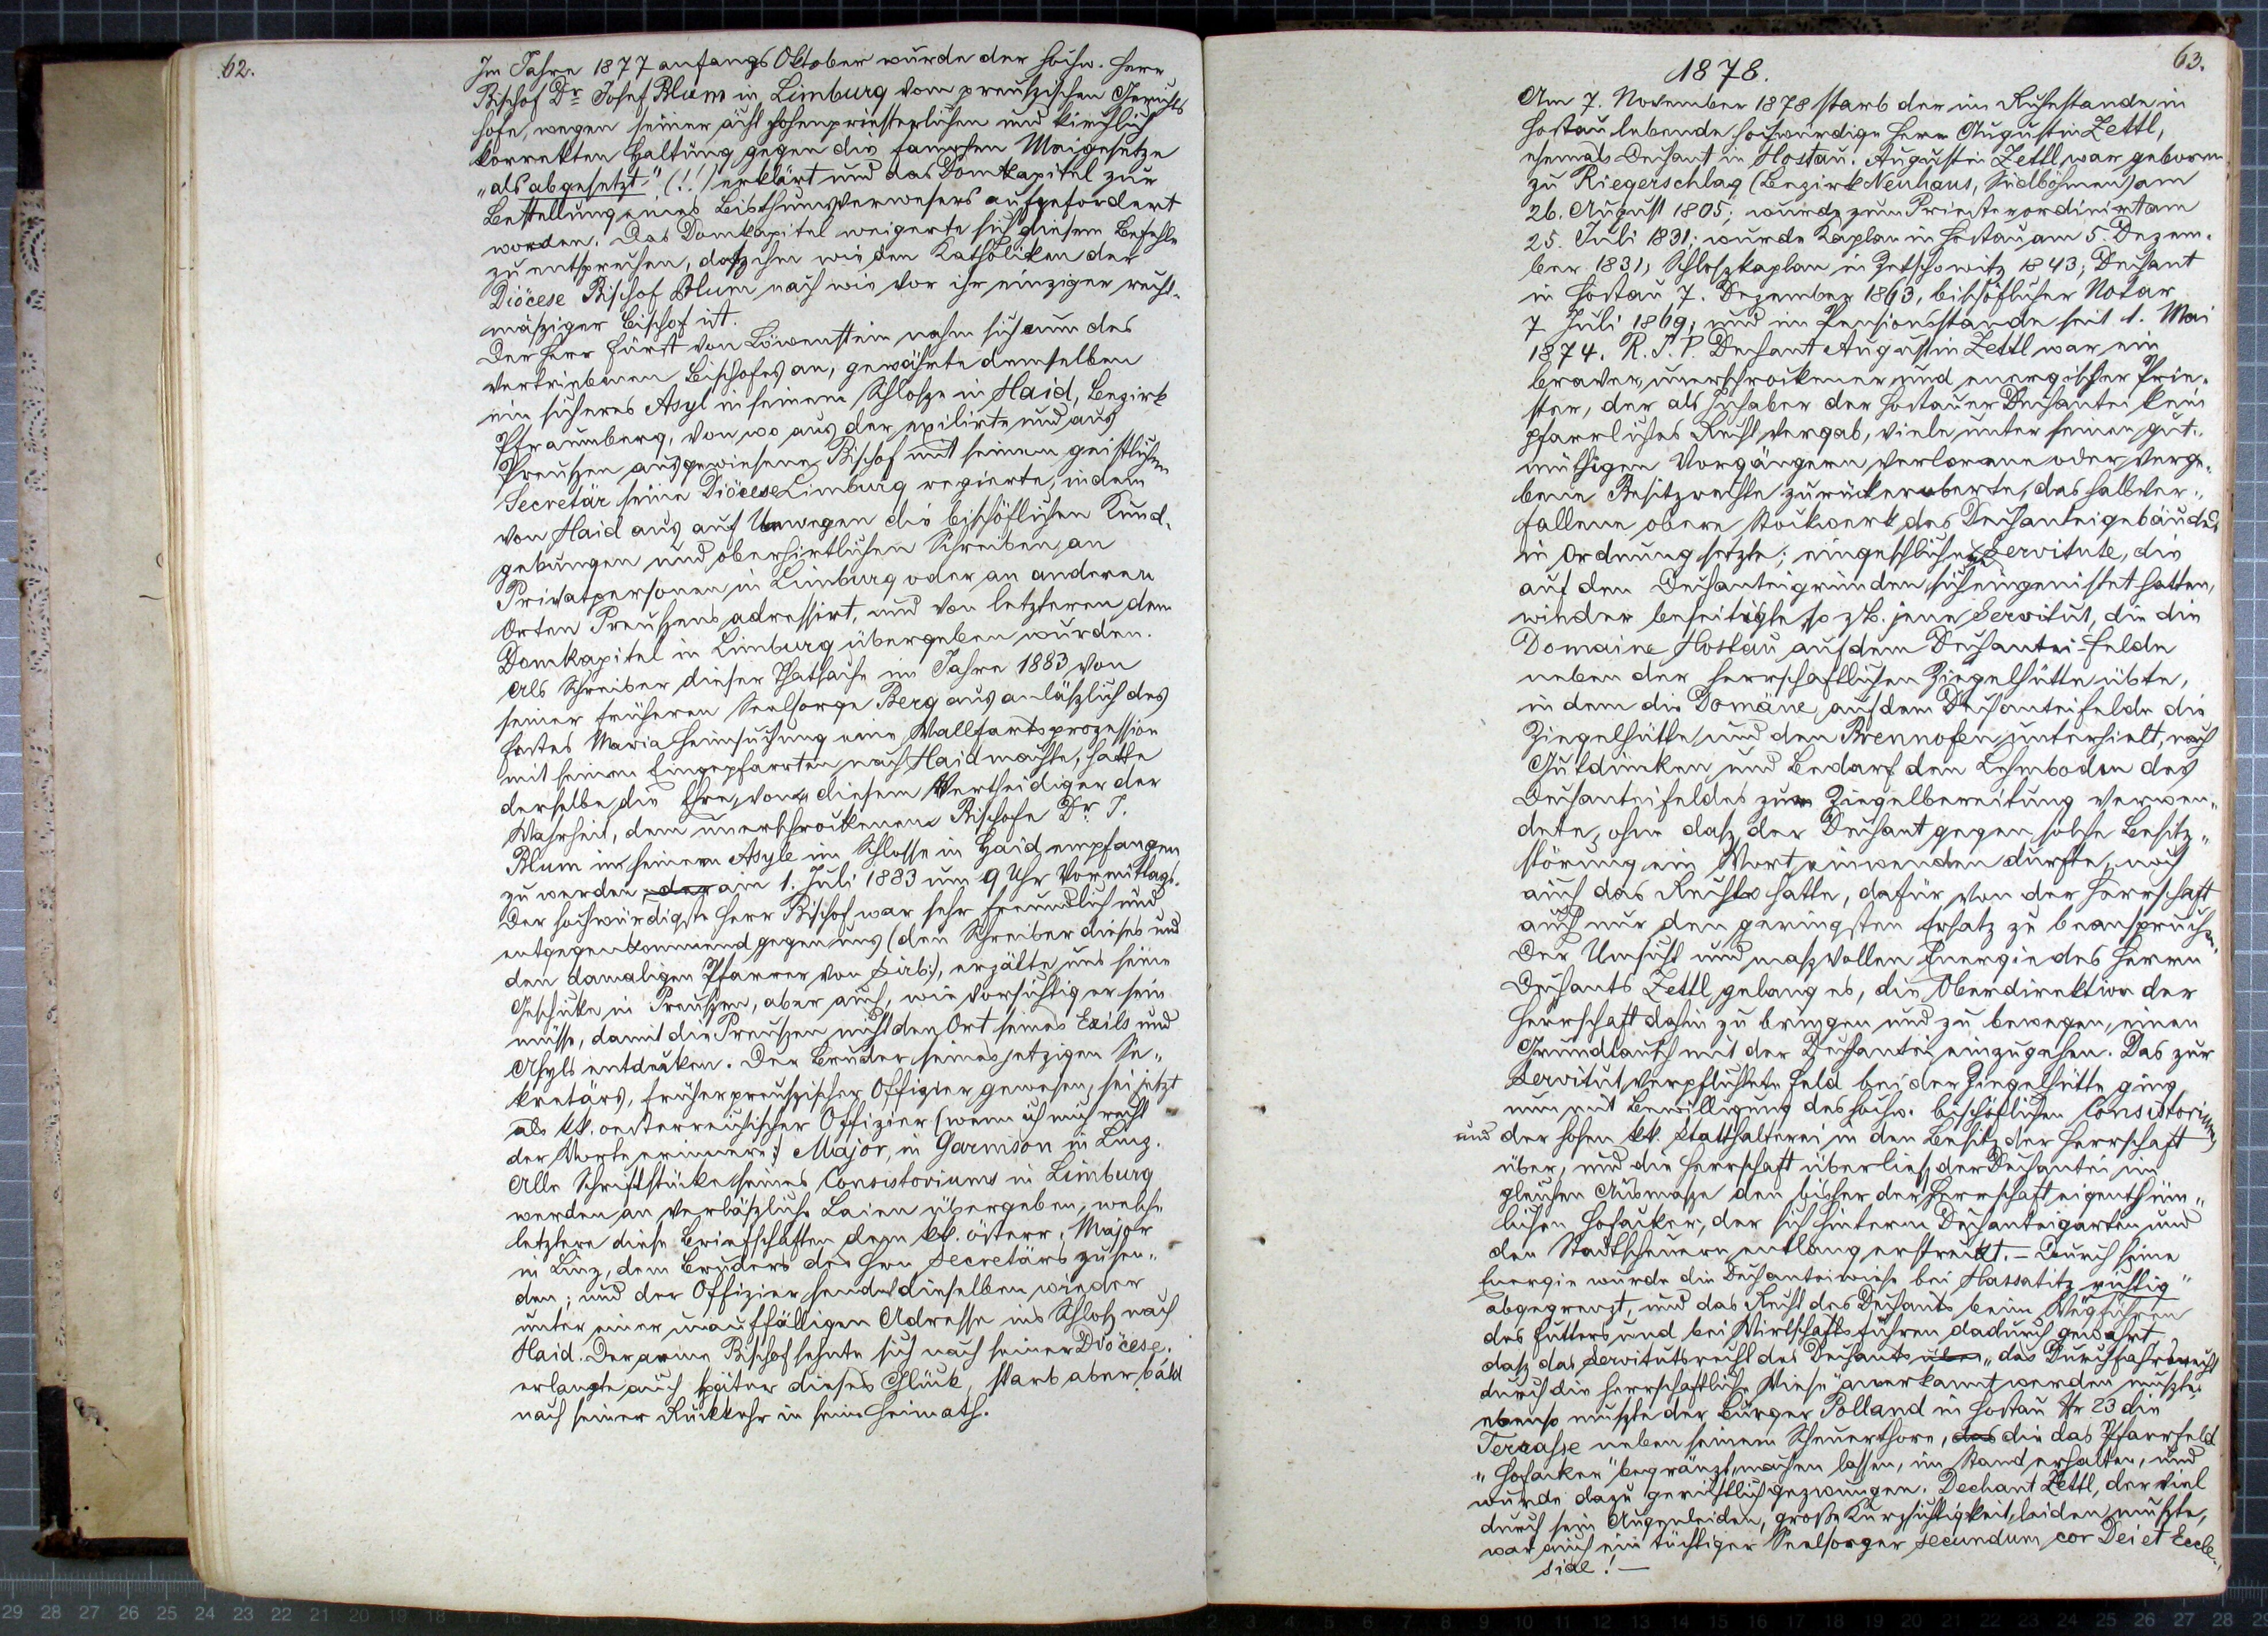 62.
Im Jahre 1877 anfangs Oktober wurde der hochw. Herr
Bischof Dr Josef Blum in Limburg vom preuszischen Gerichts
hofe, wegen seiner ächt hohenpriesterlichen und kirchlich
korrekten Haltung gegen die famosen Maigesetze
„als abgesetzt" (!!) erklärt und das Domkapitel zur
Bestellung eines Bisthumsverwesers aufgefordert
worden. Das Domkapitel weigerte sich diesem Befehle
zu entsprechen, dasz ihm wie den Katholiken der
Diöcese Bischof Blum nach wie vor ihr einziger recht-
mäsziger Bischof ist.
Der Herr Fürst von Löwenstein nahm sich nun des
vertriebenen Bischofes an, gewährte demselben
ein sicheres Asyl in seinem Schlosze in Haid, Bezirk
Pfraumberg, von wo aus der exilirte und aus
Preuszen ausgewiesene Bischof mit seinem geistlichen
Secretär seine Diöcese Limburg regierte, indem
von Haid aus auf Umwegen die bischöflichen Kund-
gebungen und oberhirtlichen Schreiben an
Privatpersonen in Limburg oder an anderen
Orten Preuszens adressirt, und von letzteren dem
Domkapitel in Limburg übergeben wurden.
Als Schreiber dieser Thatsache im Jahre 1883 von
seiner früheren Seelsorge Berg aus anläszlich des
Festes Maria Heimsuchung eine Wallfartsprozession
mit seinen Eingepfarrten nach Haid machte, hatte
derselbe die Ehre, von diesem Vertheidiger der
Wahrheit, dem unerschrockenen Bischofe Dr. J.
Blum in seinem Asyle im Schlosse in Haid empfangen
zu werden, der am 1. Juli 1883 um 9 Uhr Vormittags.
Der hochwürdigste Herr Bischof war sehr freundlich und
entgegenkommend gegen uns (den Schreiber dieses und
den damaligen Pfarrer von Sirb:), erzälte uns seine
Geschicke in Preuszen, aber auch, wie vorsichtig er sein
müsse, damit die Preuszen nicht den Ort seines Exils und
Asyls entdecken. Der Bruder seines jetzigen Se-
kretärs, früher preuszischer Offizier gewesen, sei jetzt
als kk. oesterreichischer Offizier (wenn ich mich recht
der Worte erinnere:) Major, in Garnison in Linz.
Alle Schriftstücke seines Consistoriums in Limburg
werden an verläszliche Laien übergeben, welch-
letztere diese Briefschaften dem kk. österr. Major
in Linz, dem Bruders des Hrn Secretärs zusen-
den; und der Offizier sendet dieselben wieder
unter einer unauffälligen Adresse ins Schlosz nach
Haid. Der arme Bischof sehnte sich nach seiner Diöcese.
erlangte auch später dieses Glück, starb aber bald
nach seiner Rückkehr in seine Heimath.
63.
1878.
Am 7. November 1878 starb der im Ruhestande in
Hostau lebende hochwürdige Herr Augustin Zettl,
ehemals Dechant in Hostau. Augustin Zettl war geboren
zu Riegerschlag (Bezirk Neuhaus, Südböhmen) am
26. August 1805; wurde zum Priester ordinirt am
25. Juli 1831; wurde Kaplan in Hostau am 5. Dezem-
ber 1831; Schloszkaplan in Zetschowitz 1843; Dechant
in Hostau 7. Dezember 1863, bischöflicher Notar
7 Juli 1869; und im Pensionsstande seit 1. Mai
1874. R. I. P. Dechant Augustin Zettl war ein
braver, unerschrockener und energischer Prie-
ster, der als Inhaber der Hostauer Dechantei kein
pfarrliches Recht vergab, viele unter seinen gut-
müthigen Vorgängern verlorene oder verge-
bene Besitzrechte zurückeroberte, das halbver-
fallene obere Stockwerk des Dechanteigebäudes
in Ordnung setzte; eingeschlichene Servitute, die
auf den Dechanteigründen sich eingenistet hatten,
wieder beseitigte, so z.B. jene Servitut, die die
Domaine Hostau auf dem Dechantei-Felde
neben der herrschaftlichen Ziegelhütte übte,
in dem die Domäne auf dem Dechanteifelde die
Ziegelhütte und den Brennofen unterhielt, nach
Gutdünken und Bedarf den Lehmboden des
Dechanteifeldes zur Ziegelbereitung verwen-
dete, ohne dasz der Dechant gegen solche Besitz-
störung ein Wort einwenden durfte, noch
auch das Recht hatte, dafür von der Herrschaft
auch nur den geringsten Ersatz zu beanspruchen.
Der Umsicht und maszvollen Energie des Herrn
Dechants Zettl gelang es, die Oberdirektion der
Herrschaft dahin zu bringen und zu bewegen, einen
Grundtausch mit der Dechantei einzugehen. Das zur
Servitut verpflichtete Feld bei der Ziegelhütte ging
nun mit Bewilligung des hochw. bischöflichen Consistoriums
und der hohen kk. Statthalterei in den Besitz der Herrschaft
über, und die Herrschaft überliesz der Dechantei im
gleichen Ausmasze den bisher der Herrschaft eigenthüm-
lichen Hofacker, der sich hinterm Dechanteigarten und
den Stadtscheuern entlang erstreckt. — Durch seine
Energie wurde die Dechanteiwiese bei Hassatitz „richtig"
abgegrenzt, und das Recht des Dechants beim Wegführen
des Futters und bei Wirtschaftsfuhren dadurch gewahrt,
dasz das Servitutsrecht des Dechants über „das Durchfahrtsrecht
durch die herrschaftliche Wiese" anerkannt werden muszte;
ebenso muszte der Bürger Polland in Hostau Nr 23 die
Terrasse neben seinem Scheuerthore, das die das Pfarrfeld
„Hofacker" begränzt, machen lassen, im Stand erhalten, und
wurde dazu gerichtlich gezwungen. Dechant Zettl, der viel
durch sein Augenleiden, große Kurzsichtigkeit, leiden muszte,
war auch ein tüchtiger Seelsorger secundum cor Dei et Eccle-
siae! —